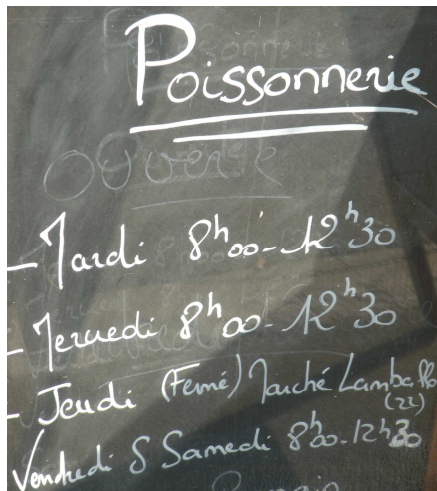 Poissonnerie
ouverte
- Mardi 8h00 - 12h30
- Mercredi 8h00 - 12h30
- Jeudi (Fermé) Marché Lamballe (22)
Vendredi & Samedi 8h00 - 12h30